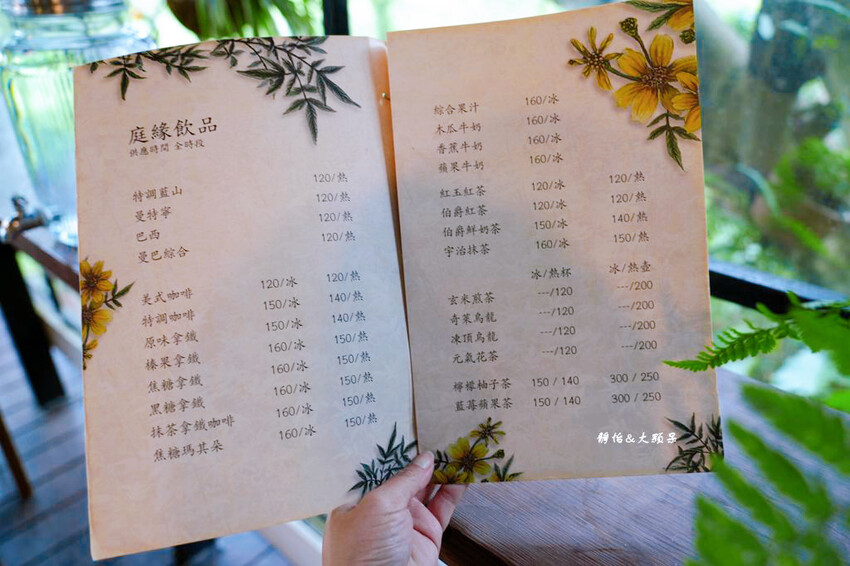 庭緣飲品
供應時間 全時段
特調藍山 120/熱
曼特寧 120/熱
巴西 120/熱
曼巴綜合 120/熱
美式咖啡 120/冰 120/熱
特調咖啡 150/冰 140/熱
原味拿鐵 150/冰 140/熱
榛果拿鐵 160/冰 150/熱
焦糖拿鐵 160/冰 150/熱
黑糖拿鐵 160/冰 150/熱
抹茶拿鐵咖啡 160/冰 150/熱
焦糖瑪其朵 160/冰 150/熱
綜合果汁 160/冰
木瓜牛奶 160/冰
香蕉牛奶 160/冰
蘋果牛奶 160/冰
紅玉紅茶 120/冰 120/熱
伯爵紅茶 120/冰 120/熱
伯爵鮮奶茶 150/冰 140/熱
宇治抹茶 160/冰 150/熱
冰/熱杯 冰/熱壺
玄米煎茶 ---/120 ---/200
奇萊烏龍 ---/120 ---/200
凍頂烏龍 ---/120 ---/200
元氣花茶 ---/120 ---/200
檸檬柚子茶 150 / 140 300 / 250
藍莓蘋果茶 150 / 140 300 / 250
靜怡&大顆呆